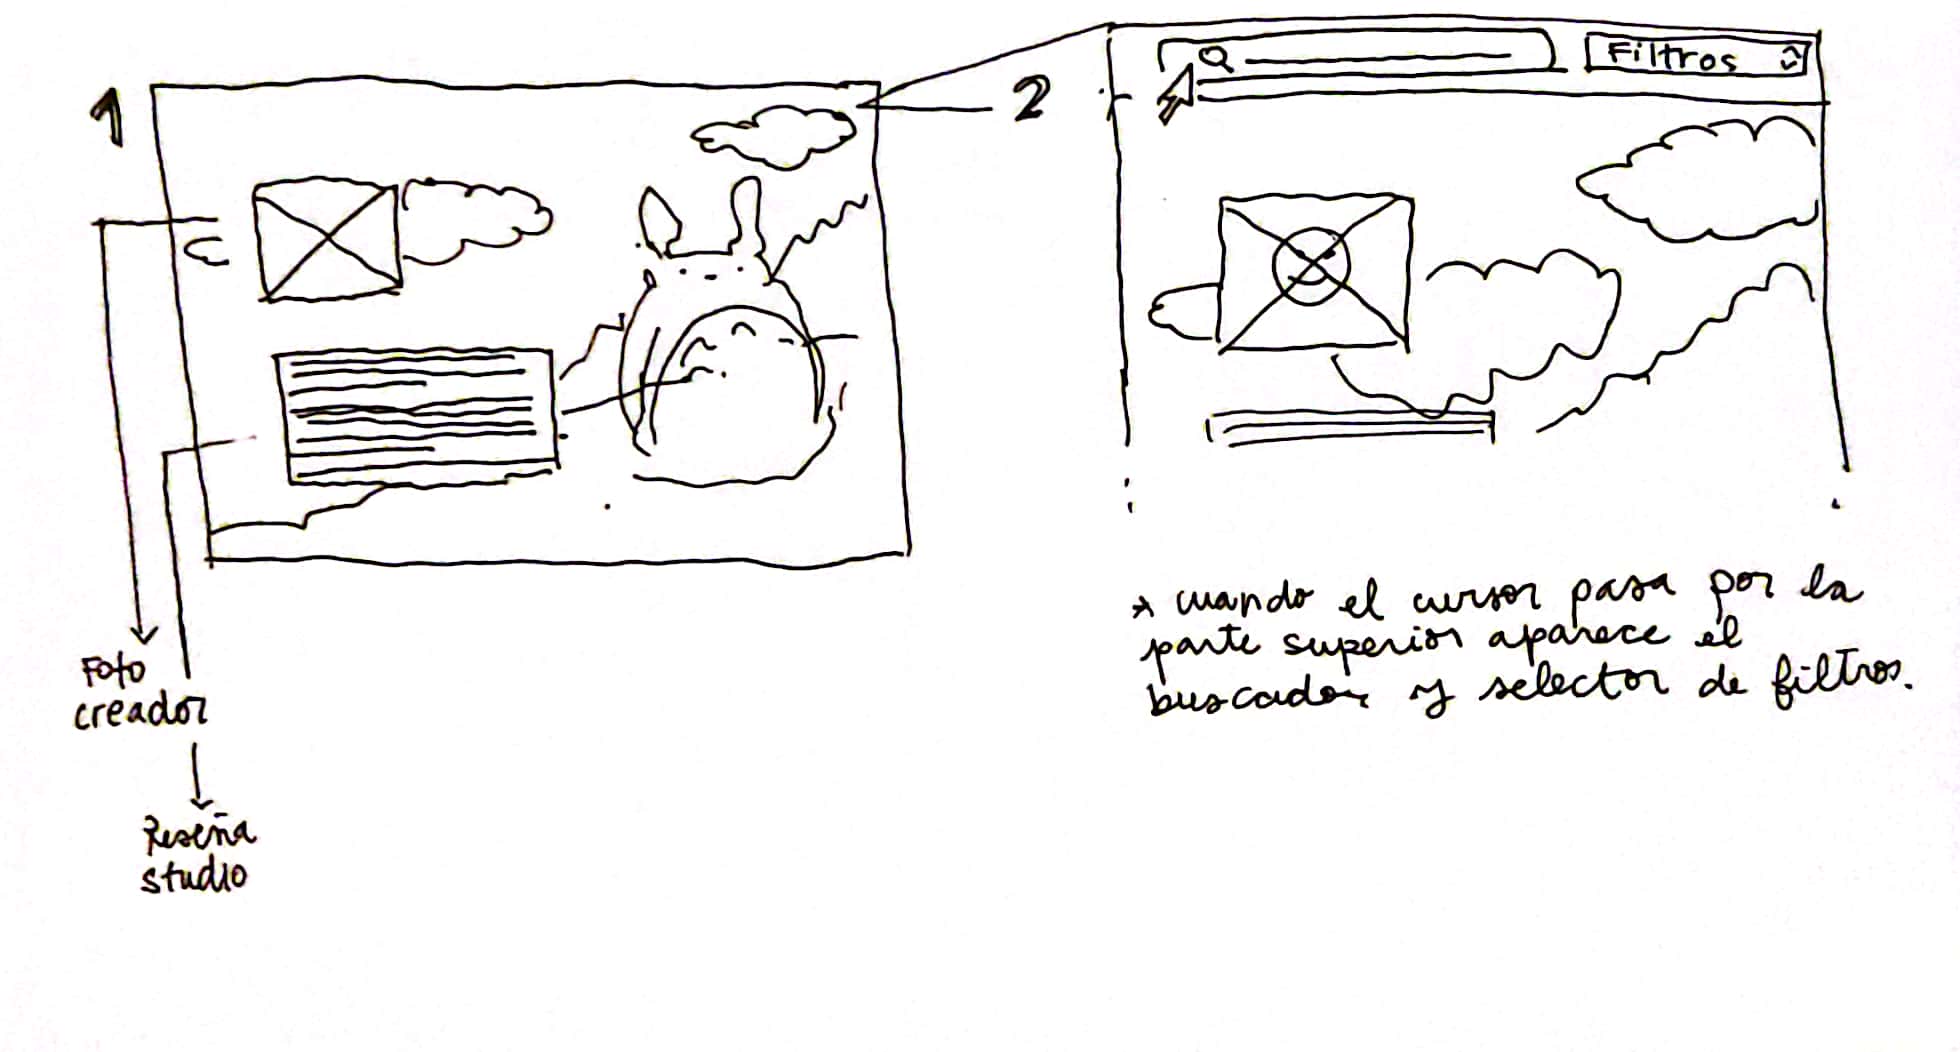 1
2
Filtros
Foto
creador
Reseña
studio
* cuando el cursor pasa por la
parte superior aparece el
buscador y selector de filtros.